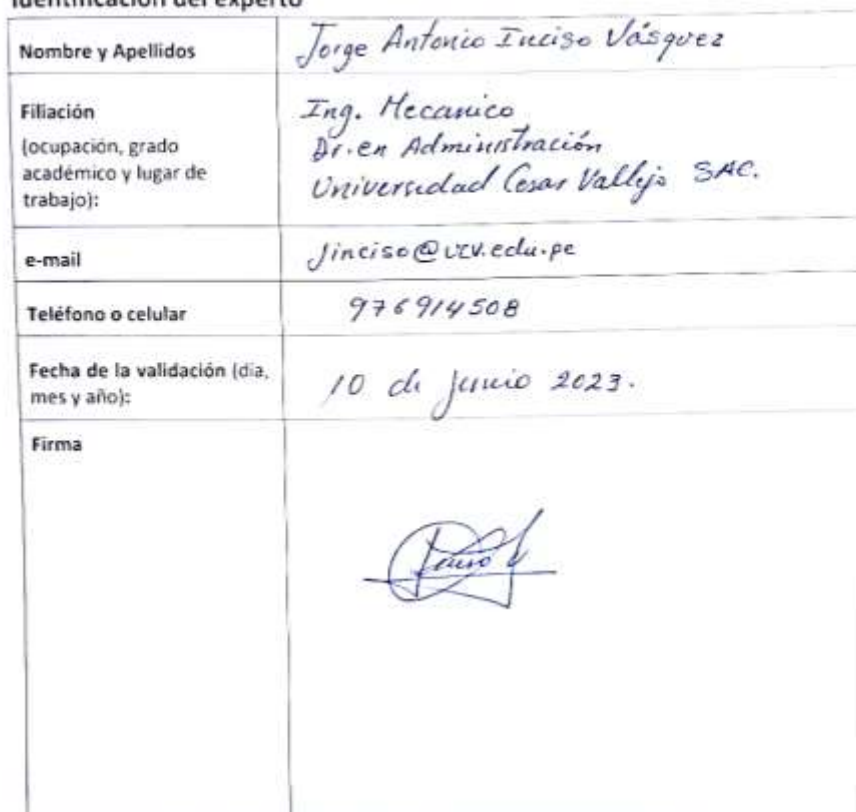 Identificación del experto
Nombre y Apellidos
Jorge Antonio Inciso Vásquez
Filiación
(ocupación, grado
académico y lugar de
trabajo):
Ing. Mecanico
Dr. en Administración
Universidad Cesar Vallejo SAC.
e-mail
Jinciso@ucv.edu.pe
Teléfono o celular
976914508
Fecha de la validación (dia,
mes y año):
10 de junio 2023.
Firma